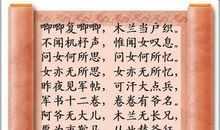 唧唧复唧唧，木兰当户织。
不闻机杼声，惟闻女叹息。
问女何所思，问女何所忆。
女亦无所思，女亦无所忆。
昨夜见军帖，可汗大点兵，
军书十二卷，卷卷有爷名。
阿爷无大儿，木兰无长兄，